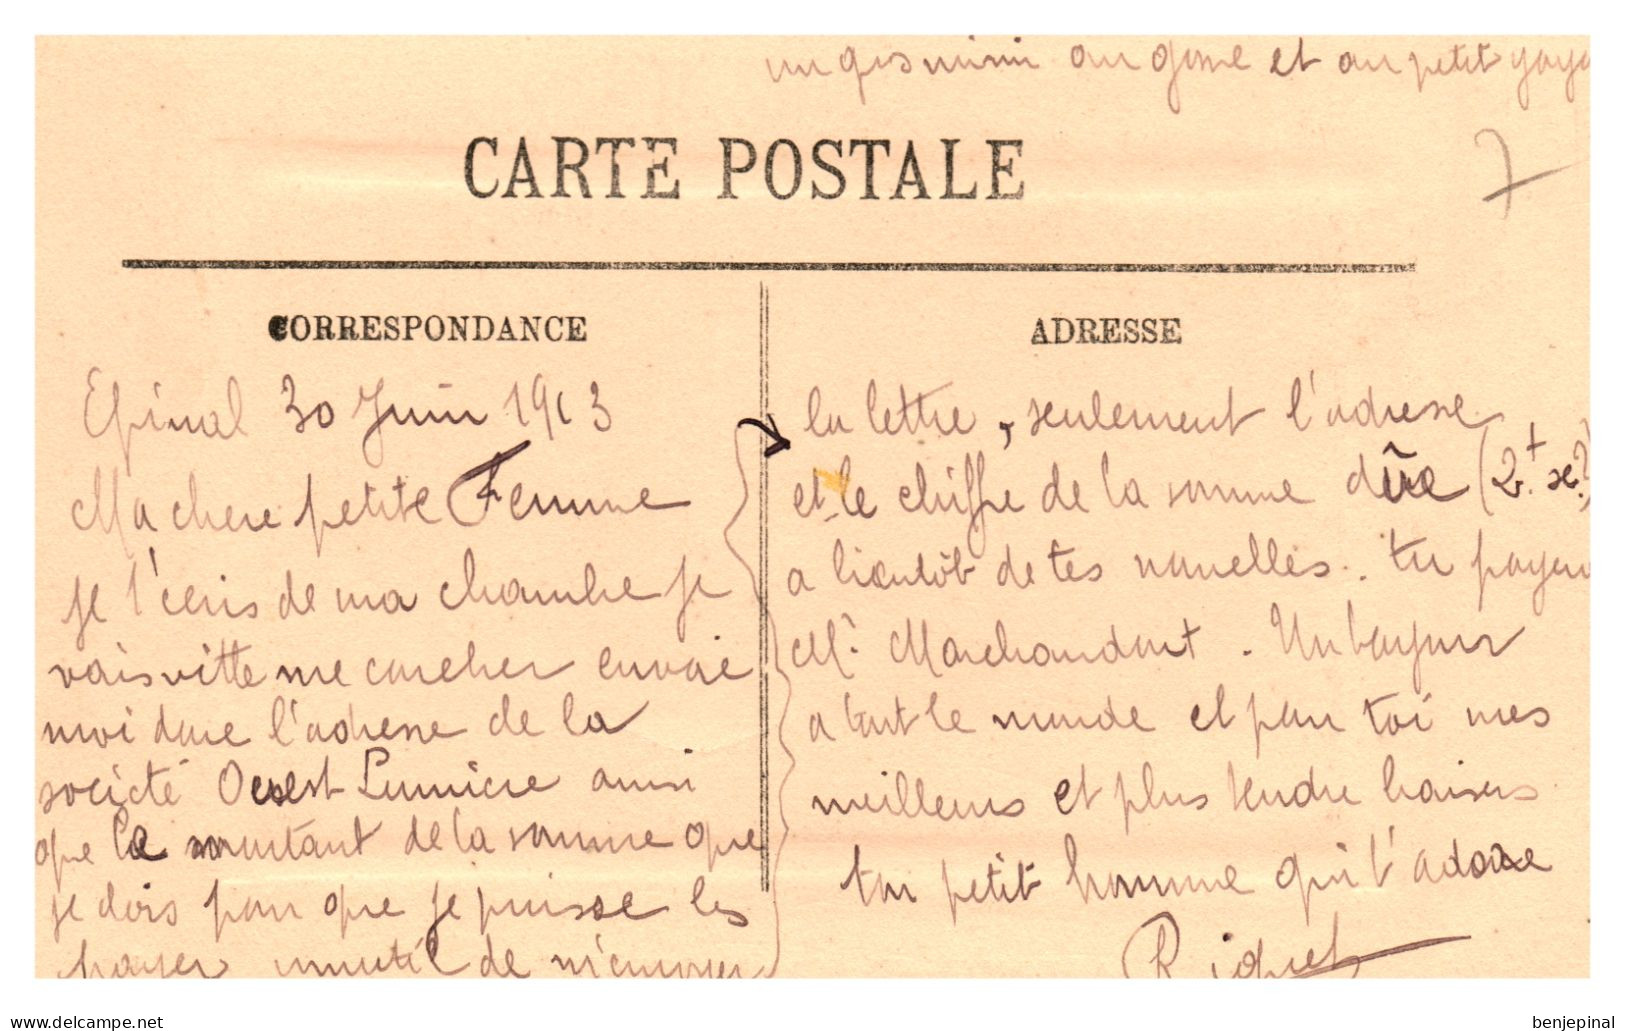 un gros mimi au gosse et au petit
7
CARTE POSTALE
CORRESPONDANCE
Epinal 30 Juin 1913
Ma chere petite Femme
je t'ecris de ma chambre je
vais vitte me coucher envoie
moi donc l'adresse de la
société Ouest Lumiere ainsi
que le montant de la somme que
je dois pour que je puisse les
payer inutil de m'envoyer
ADRESSE
la lettre, seulement l'adresse
et le chiffre de la somme dûe (2
a bientôt de tes nouvelles. tu
Mr Marchandort. Un bonjour
a tout le monde et pour toi mes
meilleurs et plus tendre baisers
ton petit homme qui t'adore
Riquet
delcampe.net
benjepinal